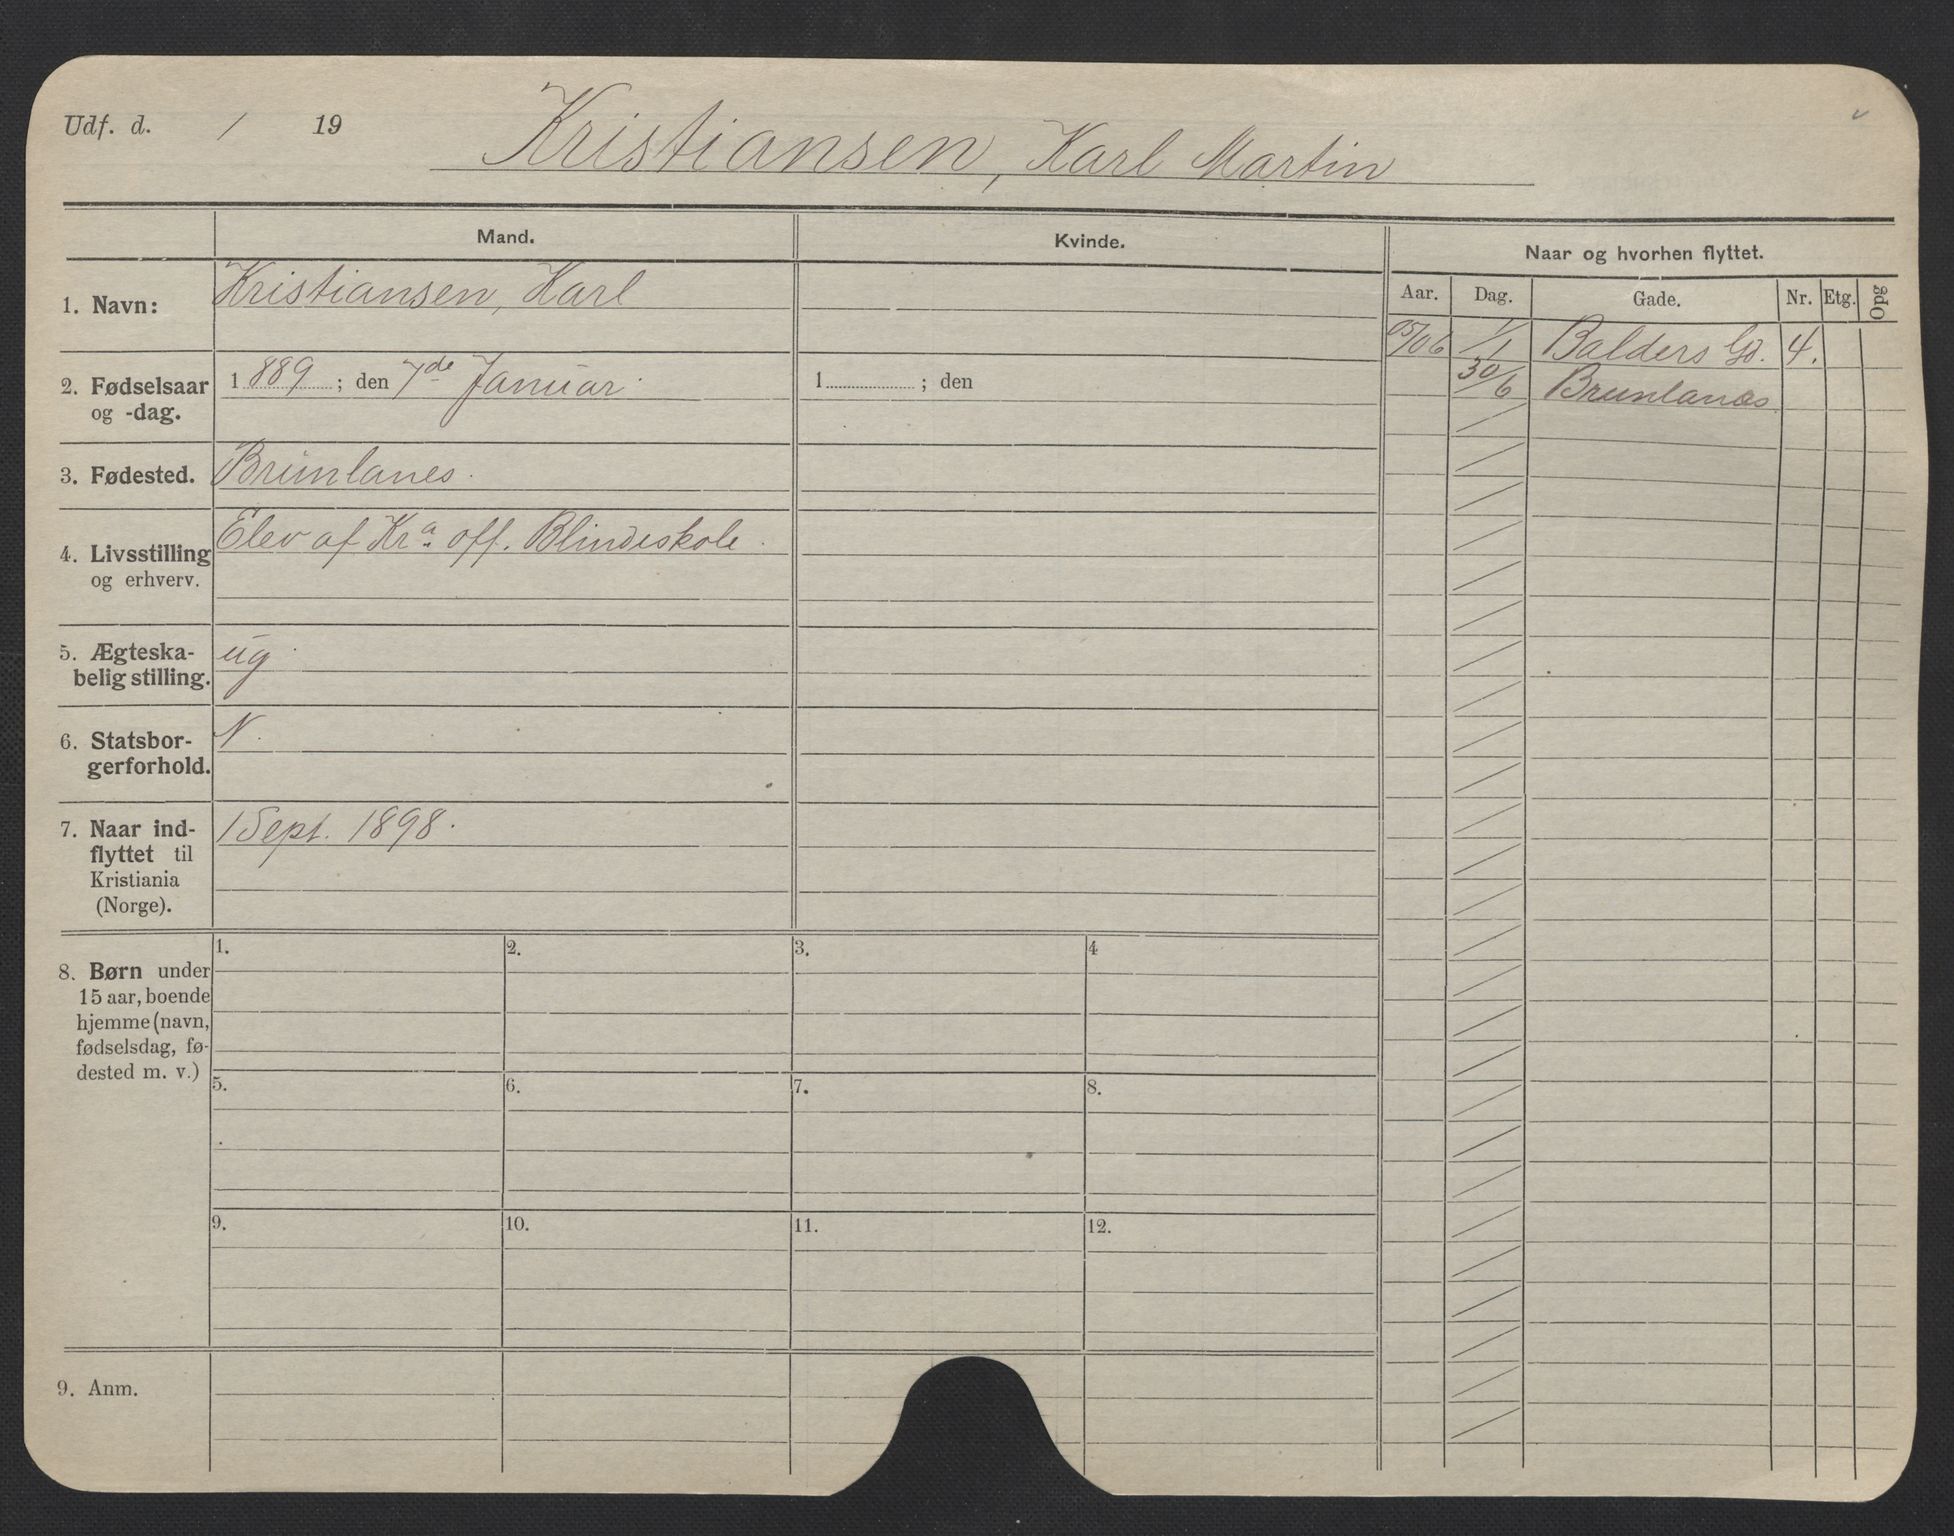 Udf. d. / 19
Kristiansen, Karl Martin
Mand. Kvinde. Naar og hvorhen flyttet.
Aar. Dag. Gade. Nr. Etg. Opg
1. Navn: Kristiansen, Karl
05/06 1/1 Balders Gd. 4.
30/6 Brunlanæs
2. Fødselsaar
og -dag.
1889; den 7de Januar. 1 ; den
3. Fødested. Brunlanes.
4. Livsstilling
og erhverv.
Elev af Kra. off. Blindeskole.
5. Ægteska-
belig stilling.
ug
6. Statsbor-
gerforhold.
N.
7. Naar ind-
flyttet til
Kristiania
(Norge).
1 Sept. 1898.
8. Børn under
15 aar, boende
hjemme (navn,
fødselsdag, fø-
dested m. v.)
1. 2. 3. 4
5. 6. 7. 8.
9. 10. 11. 12.
9. Anm.